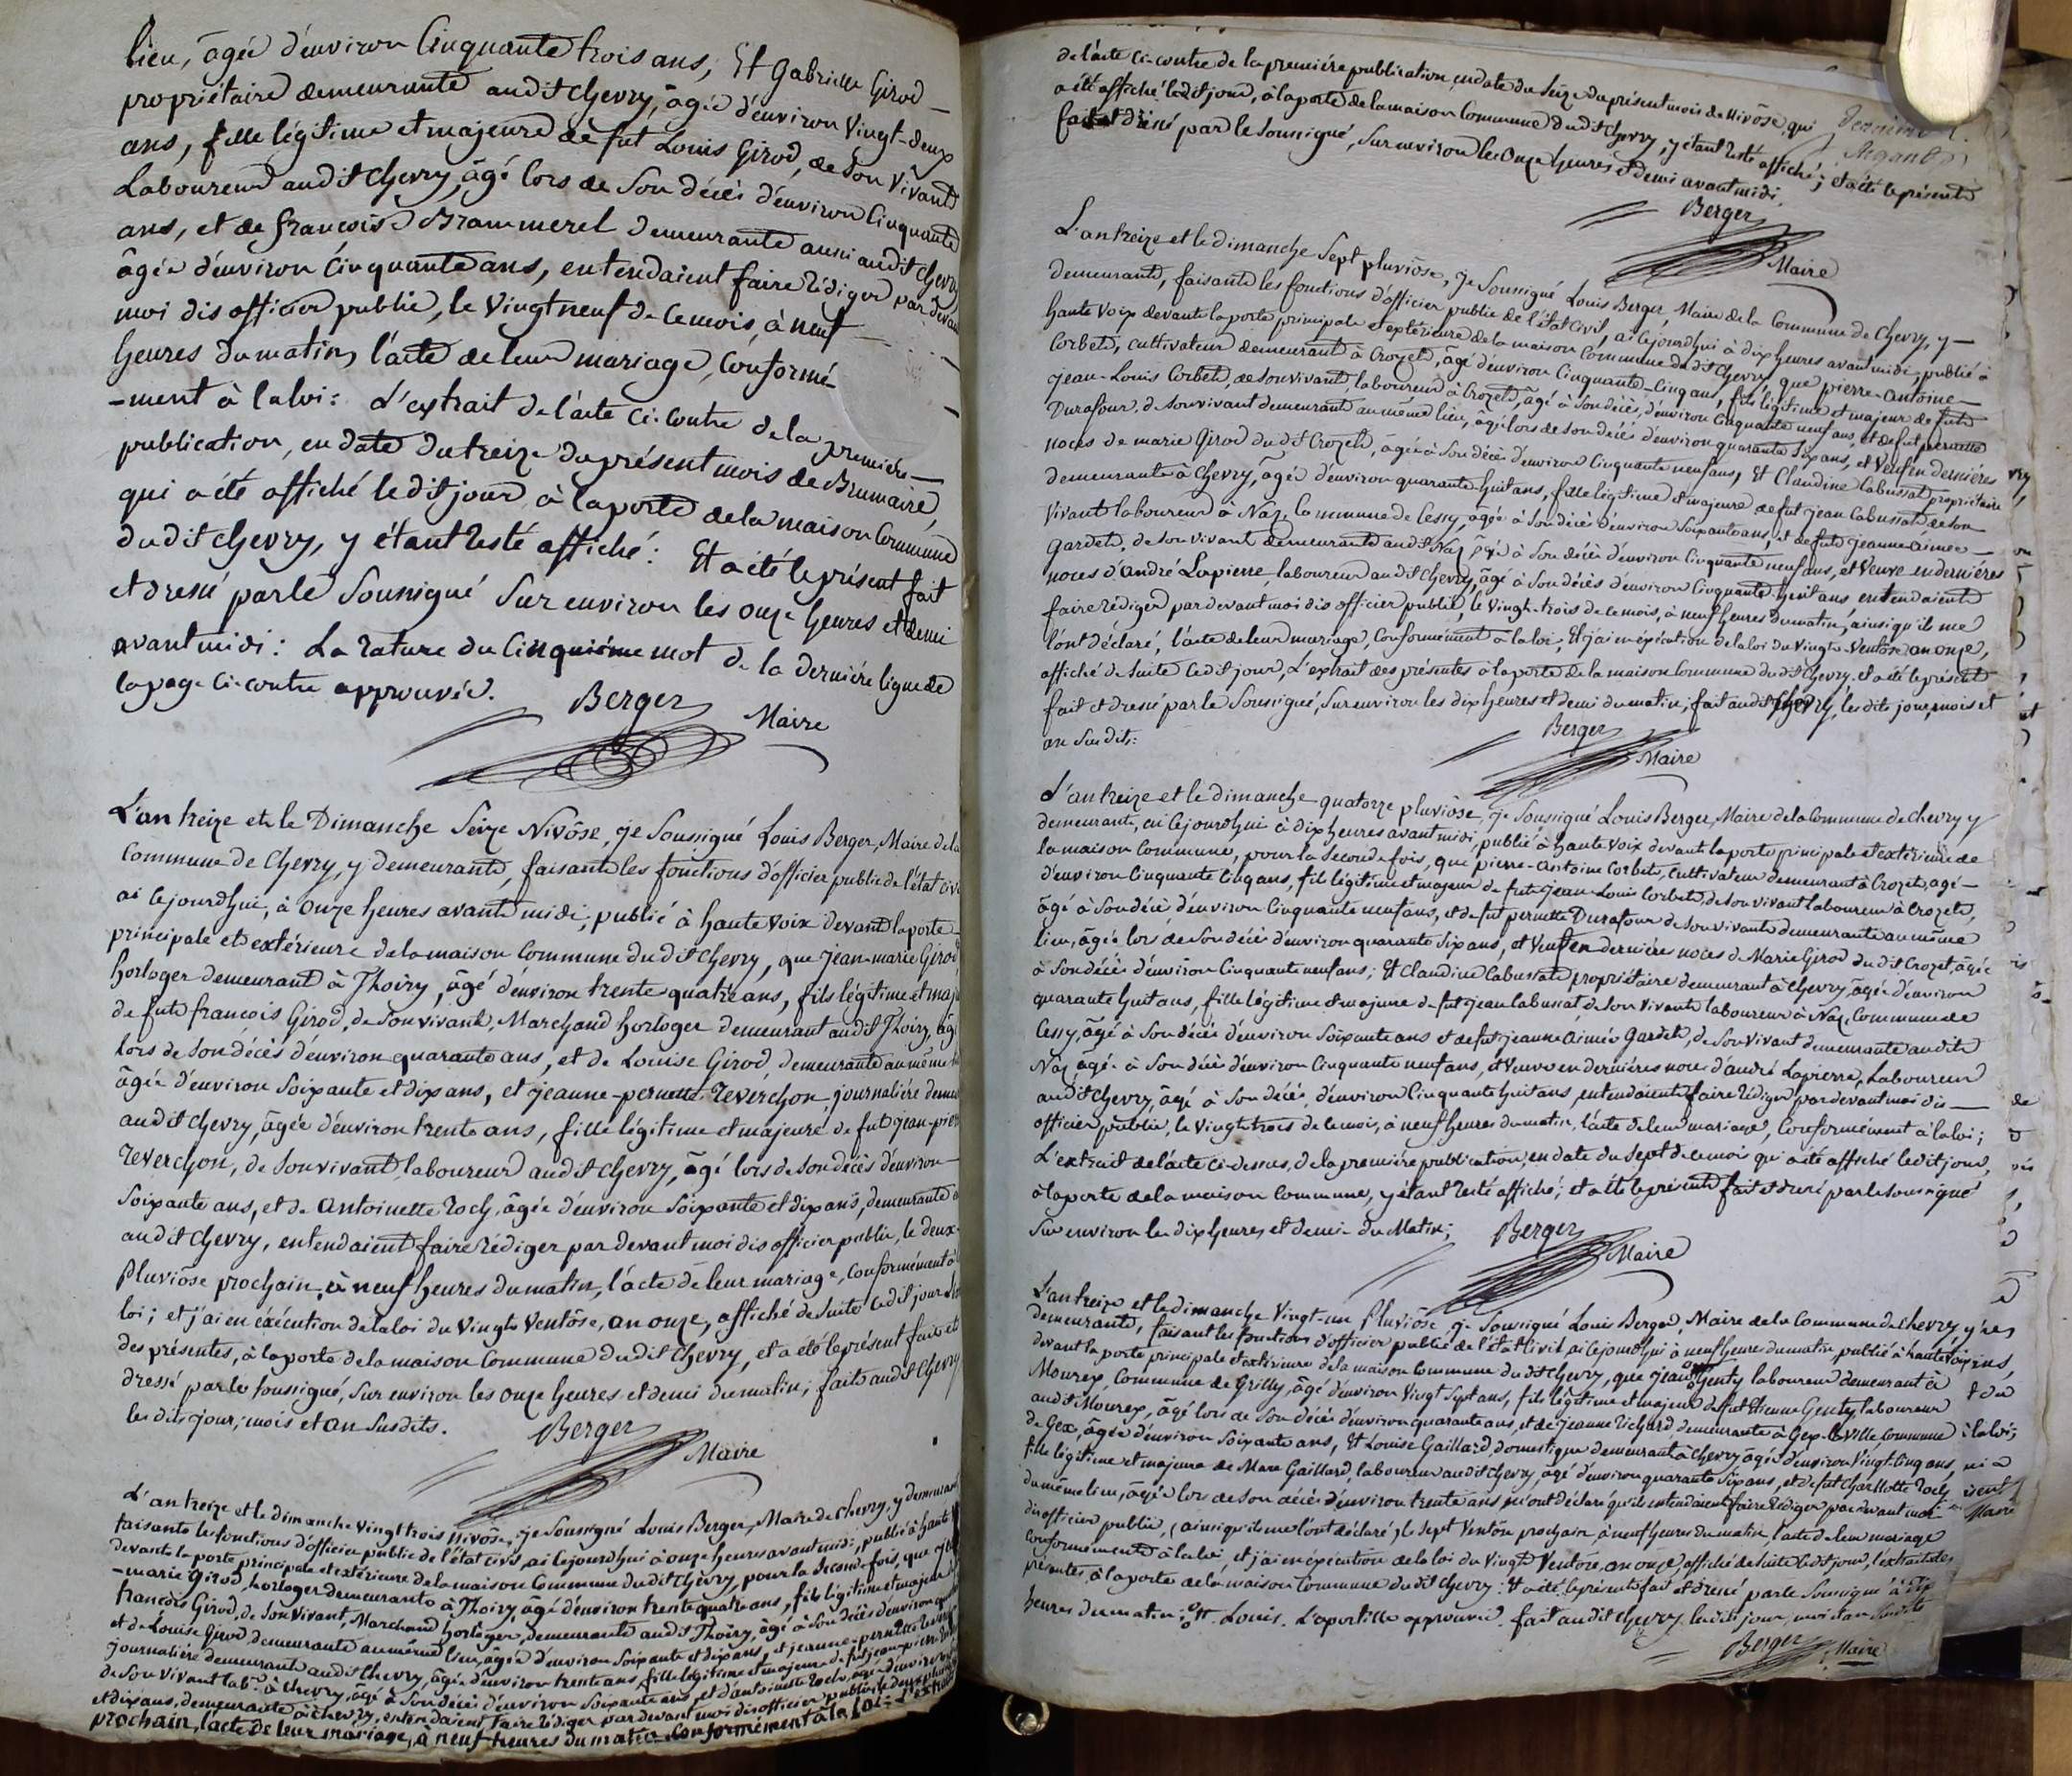 lieu, âgée d'environ Cinquante trois ans; Et Gabrielle Girod
propriétaire demeurante audit Chevry, âgée d'environ Vingt-deux
ans, fille légitime et majeure de fut Louis Girod, de Son Vivant
Laboureur audit Chevry, âgé lors de Son décès d'environ Cinquante
ans, et de françoise Brammerel demeurante aussi audit Chevry
âgée d'environ Cinquante ans, entendaient faire rédiger par devant
moi dis officier public, le Vingt neuf de ce mois, à neuf
heures du matin, l'acte de leur mariage, Conformé
-ment à la loi: L'extrait de l'acte Ci-Contre de la première
publication, en date du treize du présent mois de Brumaire,
qui a été affiché le dit jour, à la porte de la maison Commune
du dit Chevry, y étant resté affiché: Et a été le présent fait
et dressé par le Soussigné Sur environ les onze heures et demi
avant midi: La rature du Cinquième mot de la dernière ligne de
la page Ci-Contre approuvée.
Berger
Maire
L'an treize et le Dimanche Seize Nivôse, je Soussigné Louis Berger, Maire de la
Commune de Chevry, y demeurant, faisant les fonctions d'officier public de l'état civ
ai Cejourdhui, à Onze heures avant midi, publié à haute voix devant la porte
principale et extérieure de la maison Commune du dit Chevry, que Jean-marie Girod
horloger demeurant à Thoiry, âgé d'environ trente quatre ans, fils légitime et maj
de fut françois Girod, de Son vivant, Marchand horloger demeurant audit Thoiry, âg
lors de Son décès d'environ quarante ans, et de Louise Girod demeurante au même
âgée d'environ Soixante et dix ans, et jeanne-pernette Reverchon, journalière demeu
audit Chevry, âgée d'environ trente ans, fille légitime et majeure de fut jean-pier
Reverchon, de Son vivant laboureur audit Chevry, âgé lors de Son décès d'environ
Soixante ans, et de Antoinette Roch, âgée d'environ Soixante et dix ans, demeurante
audit Chevry, entendaient faire rédiger par devant moi dis officier public, le deux
Pluviôse prochain, à neuf heures du matin, l'acte de leur mariage, Conformément à
loi; et j'ai en éxécution de la loi du Vingt Ventôse, an onze, affiché de Suite le dit jour l'
des présentes, à la porte de la maison Commune du dit Chevry, et a été le présent fait et
dressé par le Soussigné, Sur environ les onze heures et demi du matin; fait audit Chevry
les dits jour, mois et an Susdits.
Berger
Maire
L'an treize et le dimanche Vingt trois nivôse, je Soussigné Louis Berger, Maire de Chevry, y demeurant
faisant les fonctions d'officier public de l'état civil, ai Cejourdhui à onze heures avant midi, publié à haute
devant la porte principale et extérieure de la maison Commune du dit Chevry, pour la Seconde fois, que
-marie Girod, horloger demeurant à Thoiry, âgé d'environ trente quatre ans, fils légitime et majeur
francois Girod, de Son vivant, Marchand horloger, demeurant audit Thoiry, âgé à Son décès d'environ
et de Louise Girod demeurante au même lieu, âgée d'environ Soixante et dix ans, et jeanne-pernette
journalière demeurant audit Chevry, âgée d'environ trente ans, fille légitime et majeure de fut jean-pierre
de Son Vivant lab.r à Chevry, âgé à Son décès d'environ Soixante ans, et d'antoinette Roch, âgée d'environ
et dix ans, demeurante à Chevry, entendaient faire rédiger par devant moi dis officier public, le deux
prochain, l'acte de leur mariage, à neuf heures du matin Conformément à la loi: L'extr
de l'acte Ci-contre de la première publication, en date du Seize du présent mois de Nivôse, qui
a été affiché le dit jour, à la porte de la maison Commune du dit Chevry, y étant resté affiché; et a été le présent
fait et dréssé par le Soussigné, Sur environ les Onze heures et demi avant midi.
Berger
Maire
L'an treize et le dimanche Sept pluviôse, je Soussigné Louis Berger, Maire de la Commune de Chevry, y
demeurant, faisant les fonctions d'officier public de l'état Civil, ai Cejourdhui à dix heures avant midi, publié à
haute voix devant la porte principale et extérieure de la maison Commune du dit Chevry, que pierre-antoine
Corbet, cultivateur demeurant à Crozet, âgé d'environ Cinquante-Cinq ans, fils légitime et majeur de fut
jean-Louis Corbet, de Son vivant, laboureur à Crozet, âgé à Son décès, d'environ Cinquante neuf ans, et de fut pernette
Durafour, de Son vivant demeurant au même lieu, âgée lors de Son décès d'environ quarante Six ans, et Veuf en dernières
noces de marie Girod du dit Crozet, âgée à Son décès d'environ Cinquante neuf ans, Et Claudine Cabussat propriétaire
demeurante à Chevry, âgée d'environ quarante-huit ans, fille légitime et majeure de fut jean Cabussat de Son
Vivant laboureur à Naz, Commune de Cessy, âgé à Son décès d'environ Soixante ans, et de fut jeanne aimée
Gardet, de Son vivant demeurante audit Naz, âgée à Son décès d'environ Cinquante neuf ans, et Veuve en dernières
noces d'André Lapierre, laboureur audit Chevry, âgé à Son décès d'environ Cinquante-huit ans, entendaient
faire rédiger par devant moi dis officier public, le Vingt-trois de ce mois, à neuf heures du matin, ainsi qu'ils me
l'ont déclaré, l'acte de leur mariage, Conformément à la loi, Et j'ai en éxécution de la loi du Vingt Ventôse an onze,
affiché de Suite le dit jour, L'extrait des présentes à la porte de la maison Commune du dit Chevry, et a été le présent
fait et dressé par le Soussigné, Sur environ les dix heures et demi du matin; fait audit Chevry, les dits jour, mois et
an Susdits:
Berger
Maire
L'an treize et le dimanche quatorze pluviôse, je Soussigné Louis Berger, Maire de la Commune de Chevry y
demeurant, ai Cejourdhui à dix heures avant midi, publié à haute voix devant la porte principale et extérieure de
la maison Commune, pour la Seconde fois, que pierre-antoine Corbet, Cultivateur demeurant à Crozet, âgé
d'environ Cinquante Cinq ans, fils légitime et majeur de fut jean-Louis Corbet, de Son vivant laboureur à Crozet,
âgé à Son décès d'environ Cinquante neuf ans, et de fut pernette Durafour de Son vivante demeurante au même
lieu, âgée lors de Son décès d'environ quarante Six ans, et Veuf en dernières noces de Marie Girod du dit Crozet, âgée
à Son décès d'environ Cinquante neuf ans; Et Claudine Cabussat, propriétaire demeurant à Chevry, âgée d'environ
quarante huit ans, fille légitime et majeure de fut jean Cabussat, de Son Vivant laboureur à Naz, Commune de
Cessy, âgé à Son décès d'environ Soixante ans et de fut jeanne Aimée Gardet, de Son Vivant demeurante audit
Naz, âgée à Son décès d'environ Cinquante neuf ans, et Veuve en dernières noces d'andré Lapierre, Laboureur
audit Chevry, âgé à Son décès, d'environ Cinquante huit ans, entendaient faire rédiger par devant moi dis
officier public, le Vingt trois de ce mois, à neuf heures du matin, l'acte de leur mariage, Conformément à la loi;
L'extrait de l'acte ci-dessus, de la première publication, en date du Sept de ce mois qui a été affiché le dit jour,
à la porte de la maison Commune, y étant resté affiché; et a été le présent fait et dressé par le Soussigné
Sur environ les dix heures et demi du Matin;
Berger
Maire
L'an treize et le dimanche Vingt-un Pluviôse je Soussigné Louis Berger, Maire de la Commune de Chevry y
demeurant, faisant les fonctions d'officier public de l'état Civil, ai Cejourdhui à neuf heures du matin publié à haute voix
devant la porte principale et extérieure de la maison Commune du dit Chevry, que jean Genty laboureur demeurant à
Mourex, Commune de Grilly, âgé d'environ Vingt Sept ans, fils légitime et majeur de fut Etienne Genty laboureur
audit Mourex, âgé lors de Son décès d'environ quarante ans, et de jeanne Richard demeurante à Gex-la-Ville, Commune
de Gex, âgée d'environ Soixante ans, Et Louise Gaillard domestique demeurant à Chevry âgée d'environ Vingt-Cinq ans,
fille légitime et majeure de Marc Gaillard, laboureur audit Chevry, âgé d'environ quarante Six ans, et de fut Charlotte Roch
du même lieu, âgée lors de Son décès d'environ trente ans m'ont déclaré qu'ils entendaient faire rédiger par devant moi
dis officier public, (ainsi qu'ils me l'ont déclaré) le Sept Ventôse prochain, à neuf heures du matin, l'acte de leur mariage
Conformément à la loi, et j'ai en éxécution de la loi du Vingt Ventôse, an onze, affiché de Suite le dit jour, l'extrait des
présentes, à la porte de la maison Commune du dit Chevry: Et a été le présent fait et dressé par le Soussigné à dix
heures du matin; Louis. L'apostille approuvée. fait audit Chevry les dit jour, mois et an Susdits
Berger
Maire